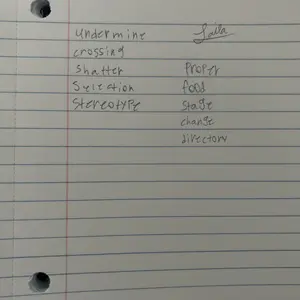 undermine
crossing
shatter
Selection
Stereotype
Laila
Proper
food
stage
change
directory